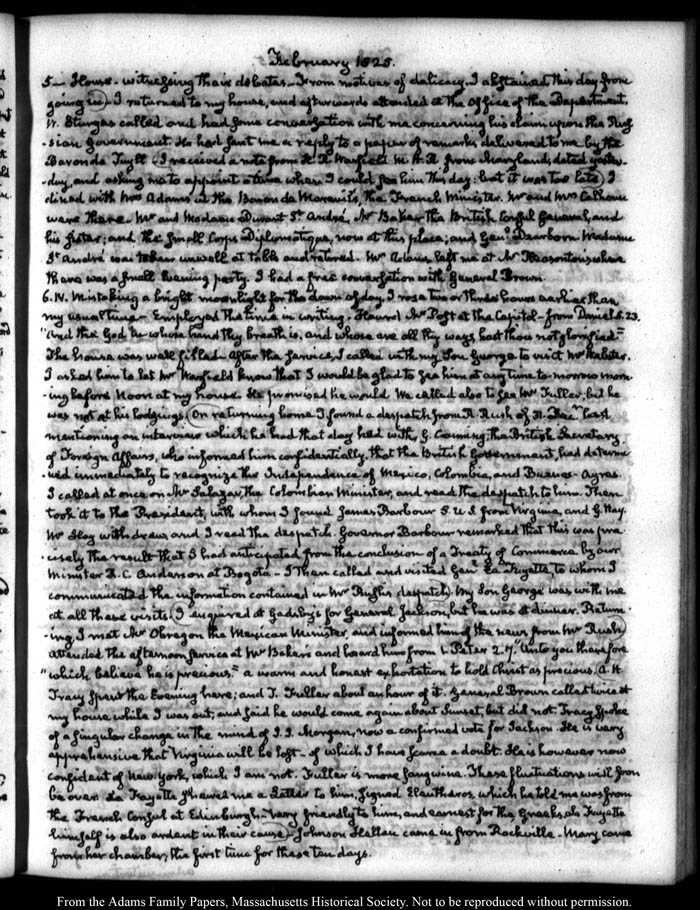 February 1825.
5 — House - witnessing their debates - From motives of delicacy, I abstained this day from
going in) I returned to my house, and afterwards attended at the Office of the Department.
W. Sturgis called and had some conversation with me concerning his claim upon the Rus-
-sian Government. He had sent me a reply to a paper of remarks delivered to me by the
Baron de Tuyll (I received a note from H. R. Warfield M. H. R. from Maryland, dated yester-
-day, and asking me to appoint a time when I could see him this day: but it was too late) I
dined with Mrs Adams at the Baron de Mareuil's, the French Minister. Mr and Mrs Calhoun
were there. Mr and Madame Durant St. André, Mr Baker the British Consul General, and
his sister; and the small Corps Diplomatique, now at this place; and Genl. Dearborn. Madame
St. André was taken unwell at table and retired. Mrs Adams left me at Mr Thornton's where
there was a small Evening party. I had a free conversation with General Brown
6. IV. Mistaking a bright moonlight for the dawn of day, I rose two or three hours earlier than
my usual time - Employed the time in writing. Heard Mr Post at the Capitol - from Daniel 5. 23.
"And the God in whose hand thy breath is, and whose are all thy ways, hast thou not glorified"
The house was well filled. After the service, I called with my Son George to visit Mr Webster.
I asked him to let Mr Warfield know that I would be glad to see him at any time to-morrow morn-
-ing before Noon at my house. He promised he would. We called also to see Mr Fuller; but he
was not at his lodgings (On returning home I found a despatch from R. Rush of 31. Decr. last
mentioning an interview which he had that day held with G. Canning, the British Secretary
of Foreign Affairs, who informed him confidentially, that the British Government, had determi-
-ned immediately to recognize the Independence of Mexico, Colombia, and Buenos-Ayres.
I called at once on Mr Salazar, the Colombian Minister, and read the despatch to him. Then
took it to the President, with whom I found James Barbour S. U. S. from Virginia, and G. Hay.
Mr Hay withdrew and I read the despatch. Governor Barbour remarked that this was pre-
-cisely the result that I had anticipated from the conclusion of a Treaty of Commerce by our
Minister R. C. Anderson at Bogota - I then called and visited Genl. La Fayette, to whom I
communicated the information contained in Mr Rush's despatch) My Son George was with me
at all these visits (I enquired at Gadsby's for General Jackson, but he was at dinner. Return-
-ing, I met Mr Obregon the Mexican Minister, and informed him of the news from Mr Rush)
attended the afternoon service at Mr Baker's and heard him from 1. Peter 2. 7. Unto you therefore
"which believe he is precious." a warm and honest exhortation to hold Christ as precious. (A. H.
Tracy spent the Evening here; and T. Fuller about an hour of it. General Brown called twice at
my house while I was out, and said he would come again about Sunset, but did not. Tracy spoke
of a singular change in the mind of J. J. Morgan, now a confirmed vote for Jackson. He is very
apprehensive that Virginia will be lost - of which I have scarce a doubt. He is however now
confident of New York, which I am not. Fuller is more sanguine. These fluctuations will soon
be over. La Fayette shewed me a Letter to him, signed Eleutheros, which he told me was from
the French Consul at Edinburgh - very friendly to him, and earnest for the Greeks, La Fayette
himself is also ardent in their cause) Johnson Hellen came in from Rockville - Mary came
from her chamber, the first time for these ten days.
From the Adams Family Papers, Massachusetts Historical Society. Not to be reproduced without permission.